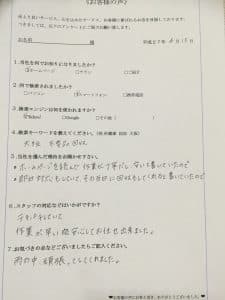 《お客様の声》
お名前 様 平成27年6月15日
1.当社を何でお知りになりましたか?
☑ホームページ □チラシ □ご紹介
2.何で検索されましたか?
□パソコン ☑スマートフォン □携帯電話
3.検索エンジンは何を使われますか?
☑Yahoo! □Google □その他( )
4.検索キーワードを教えてください。
大阪 不用品回収
5.当社を選んだ理由をお聞かせ下さい。
・ホームページを読んで 作業が丁寧だし、安いと書いていたので
・即日対応もしていて、その当日に回収もしてくれると書いていたので
6.スタッフの対応などはいかがですか?
テキパキしていて
作業が早い為安心してお任せ出来ました。
7.お気づきの点などございましたらご記入ください。
雨の中頑張ってしてくれました。